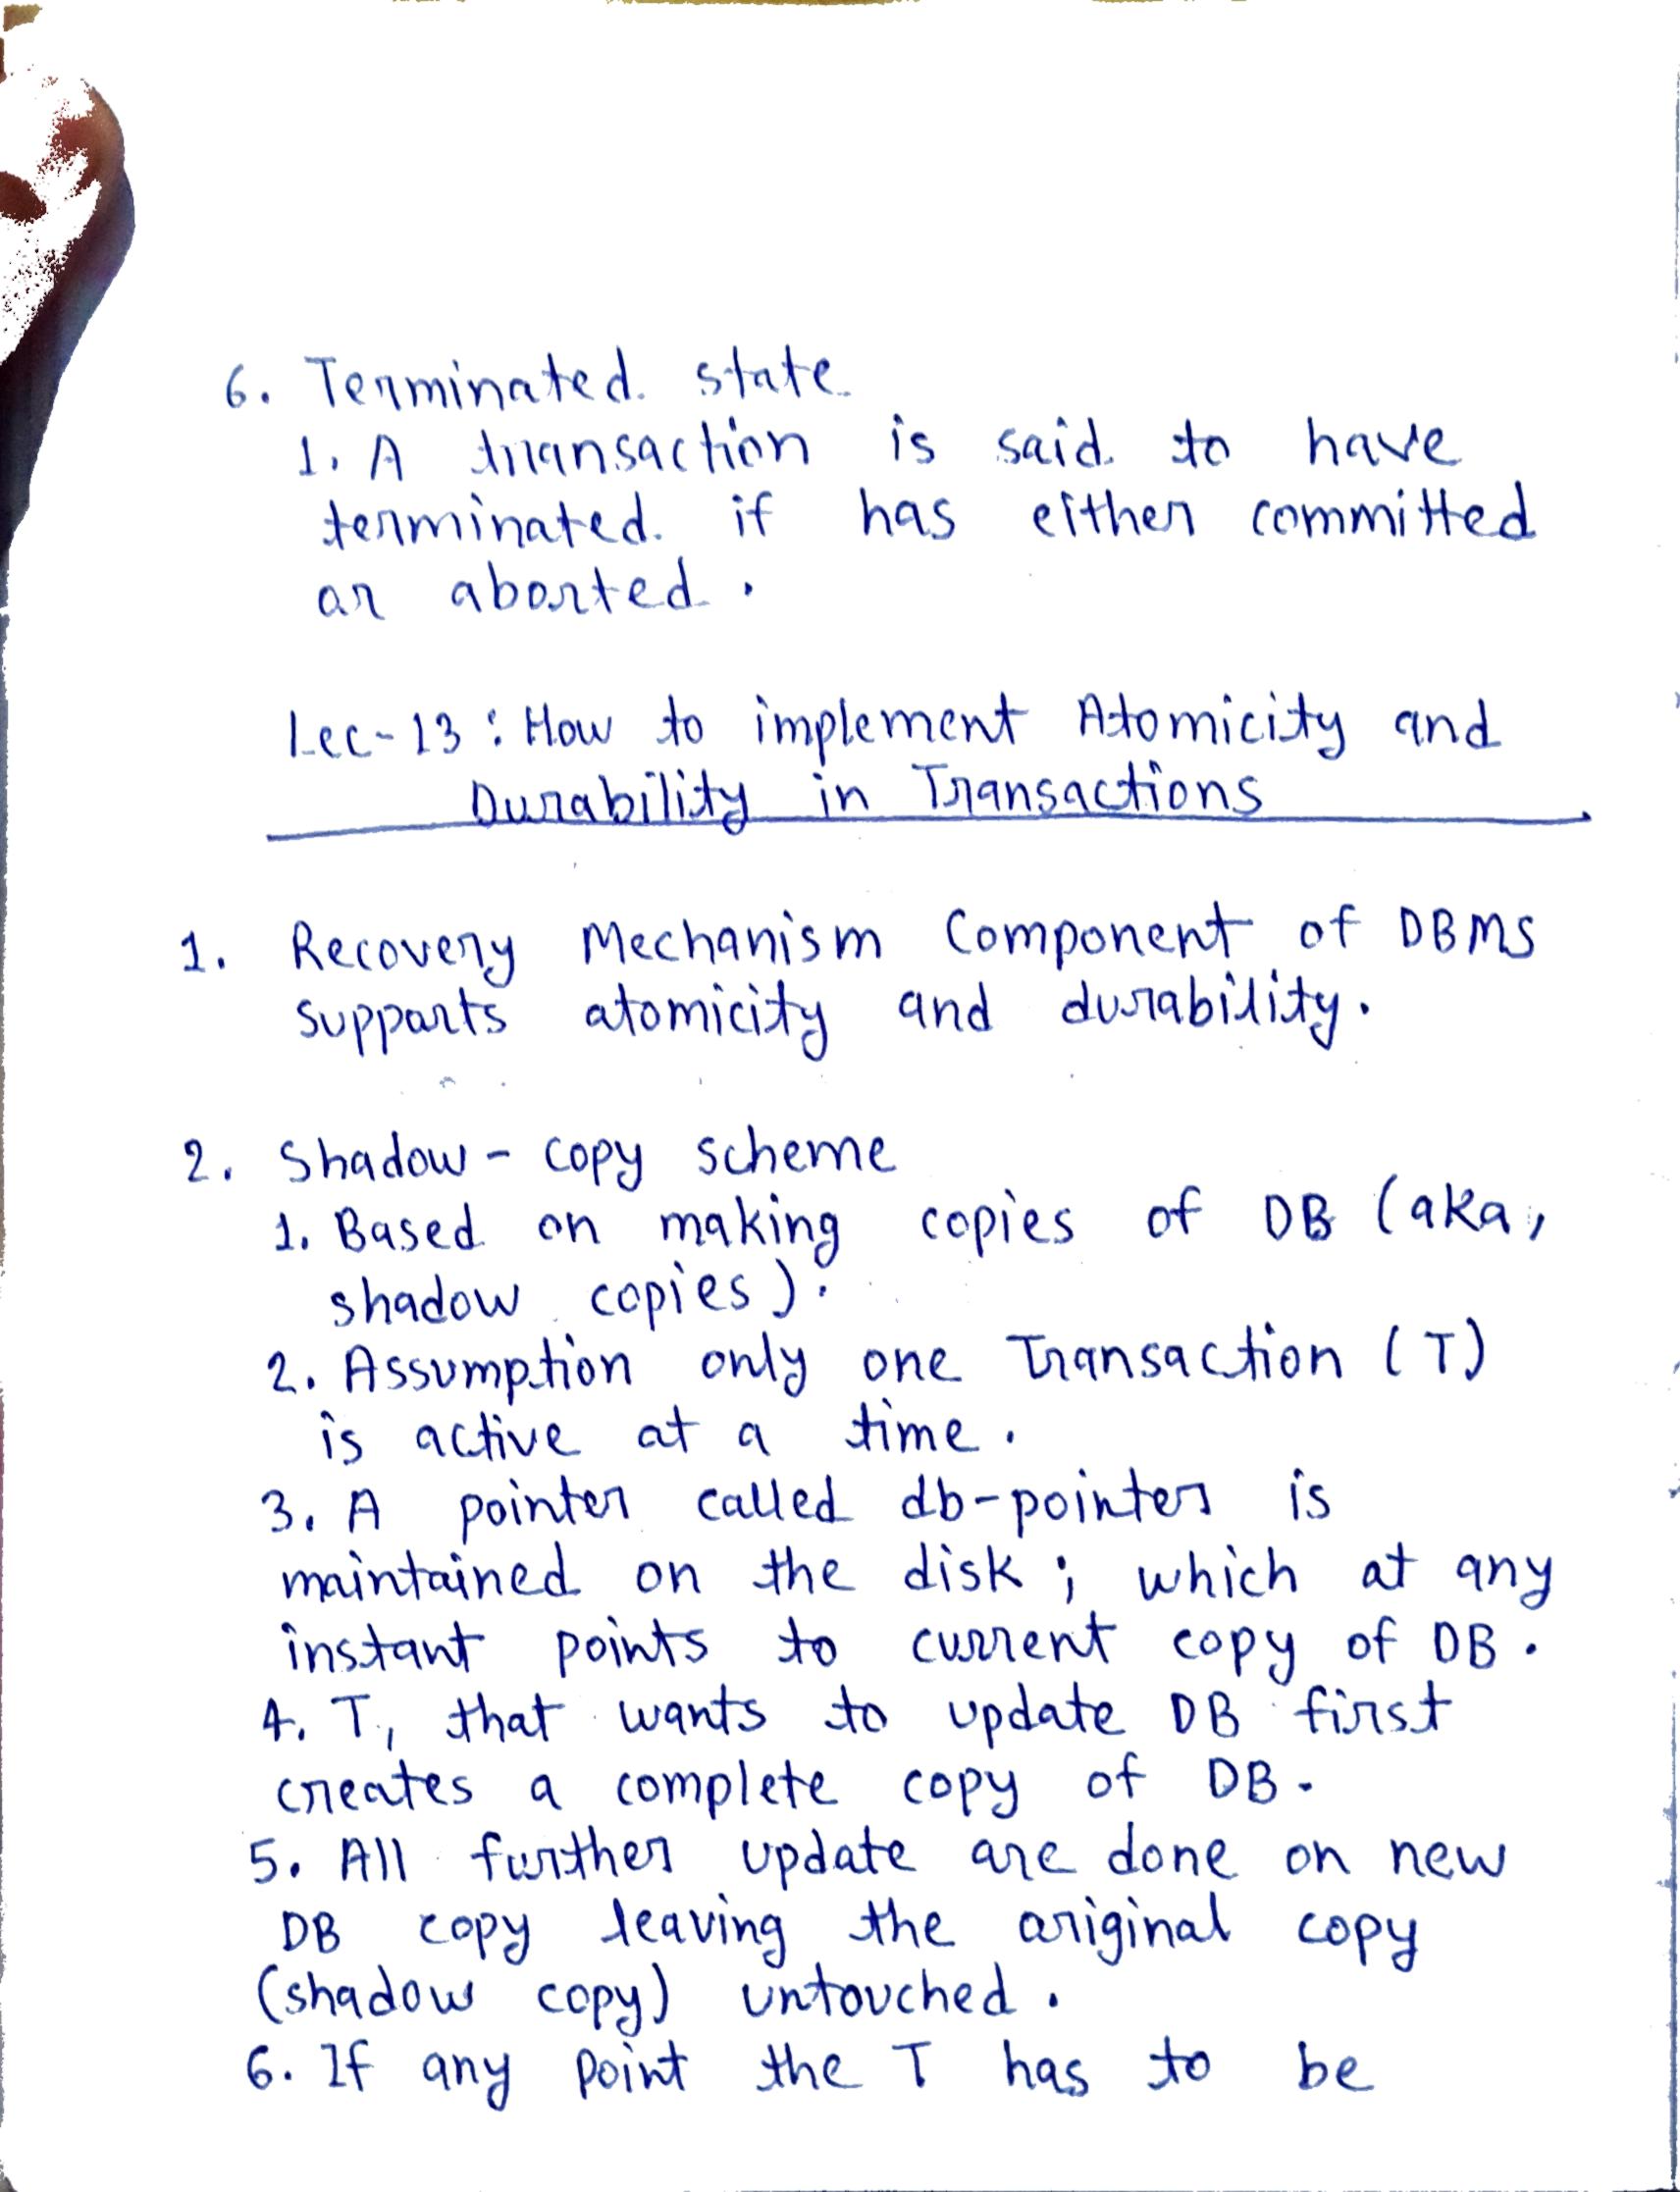 6. Terminated state
1. A transaction is said to have
terminated if has either committed
or aborted.
Lec-13: How to implement Atomicity and
Durability in Transactions
1. Recovery Mechanism Component of DBMS
supports atomicity and durability.
2. Shadow-copy scheme
1. Based on making copies of DB (aka,
shadow copies).
2. Assumption only one Transaction (T)
is active at a time.
3. A pointer called db-pointer is
maintained on the disk; which at any
instant points to current copy of DB.
4. T, that wants to update DB first
creates a complete copy of DB.
5. All further update are done on new
DB copy leaving the original copy
(shadow copy) untouched.
6. If any point the T has to be